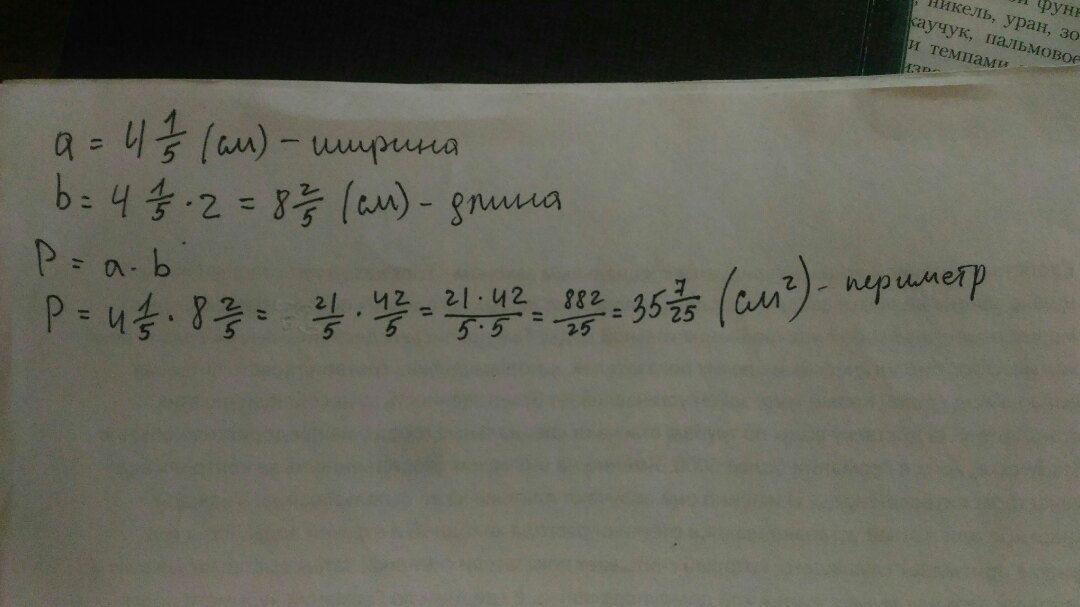 функ
никель, уран, зо
каучук, пальмовое
и темпами
a = 4 1/5 (см) - ширина
b = 4 1/5 · 2 = 8 2/5 (см) - длина
P = a · b
P = 4 1/5 · 8 2/5 = 21/5 · 42/5 = 21 · 42/5 · 5 = 882/25 = 35 7/25 (см²) - периметр